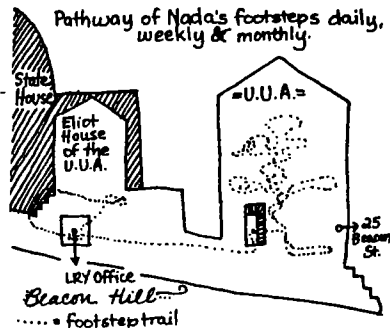 Pathway of Nada's footsteps daily,
weekly & monthly.
State
House
Eliot
House
of the
U.U.A.
=U.U.A.=
25
Beacon
St.
LRY Office
Beacon Hill
..... = footstep trail